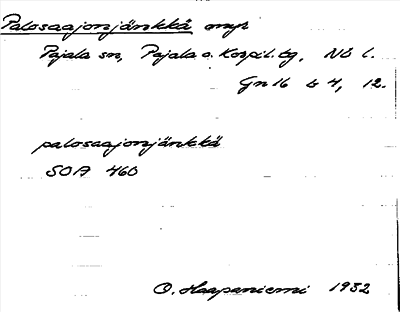 Palosaajonjänkkä myr
Pajala sn, Pajala o. Korpil. tg, Nb l.
Gn 16 b 4, 12.
palosaajonjänkkä
SOA 460
O. Haapaniemi 1932